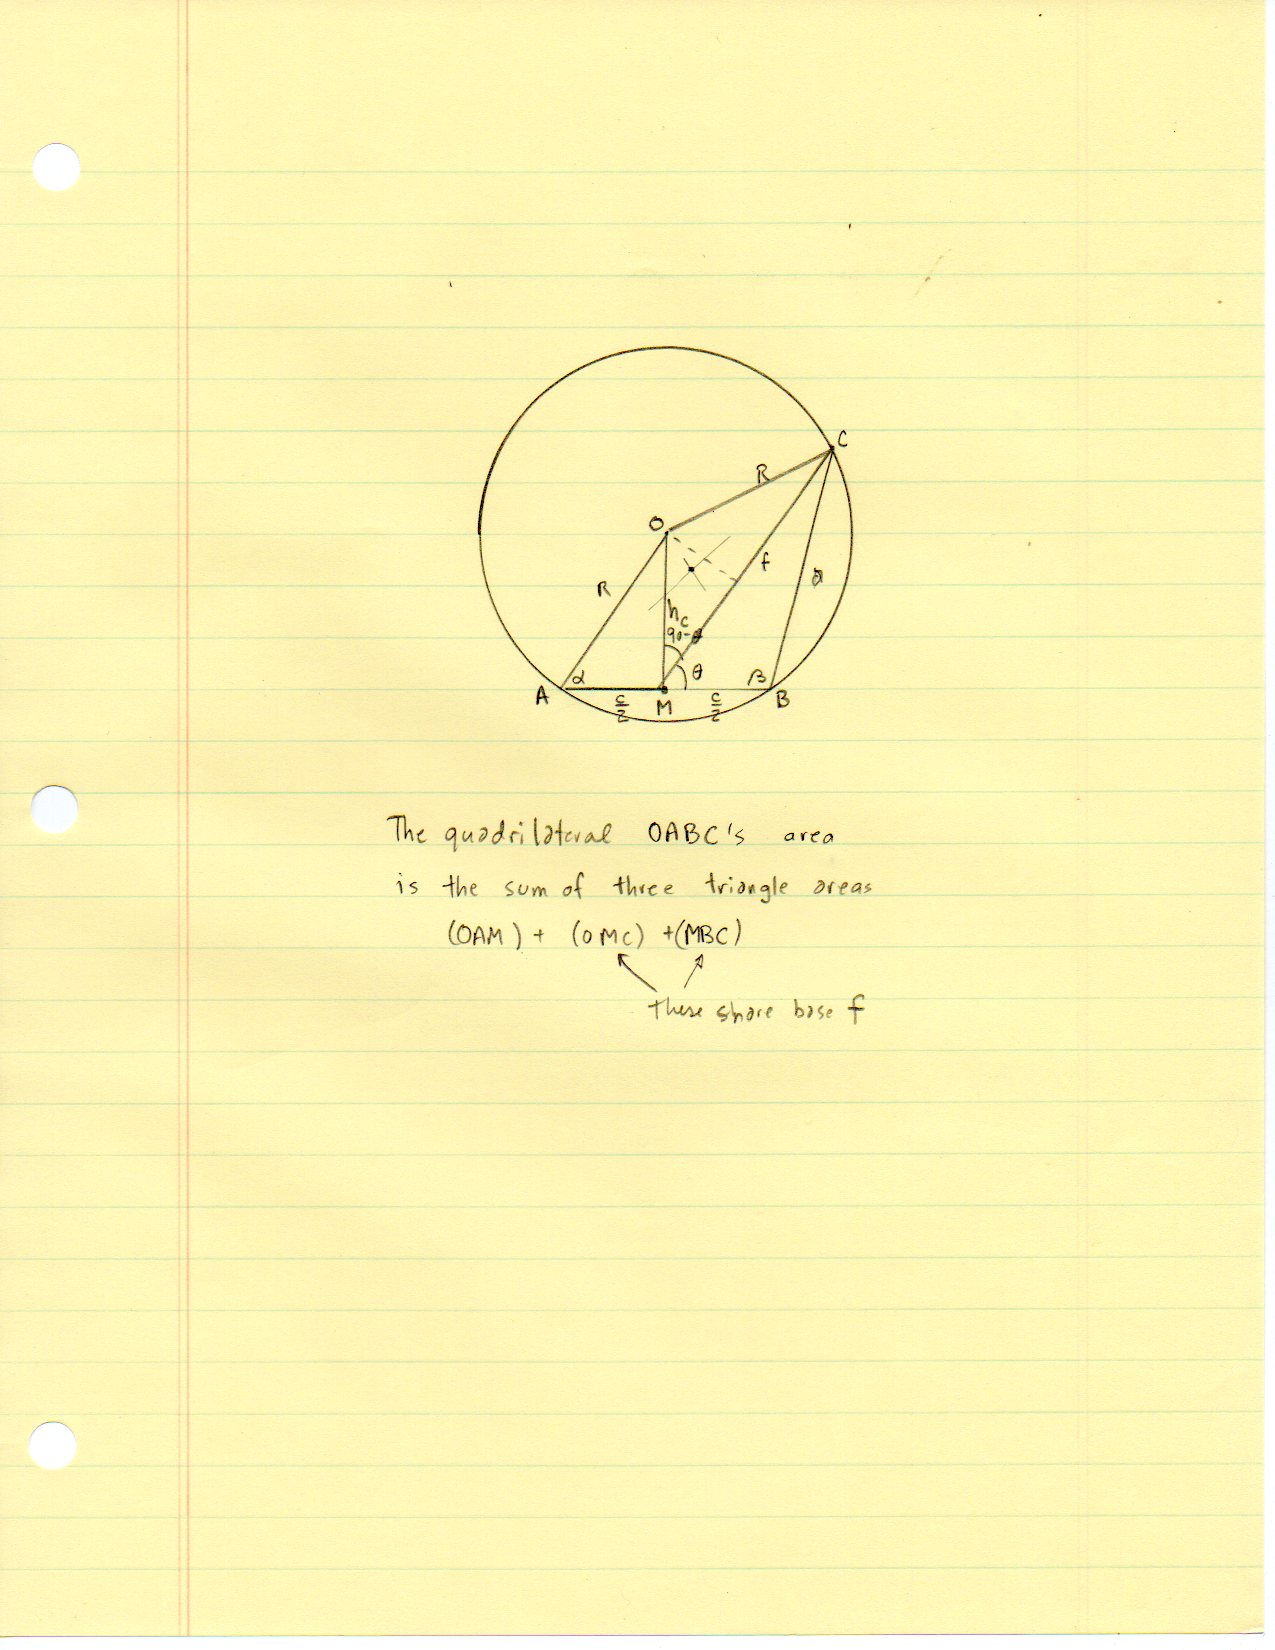 C
R
O
f
R
a
h_c
90-θ
α
θ
β
A
c/2
M
c/2
B
The quadrilateral OABC's area
is the sum of three triangle areas
(OAM) + (OMC) +(MBC)
these share base f